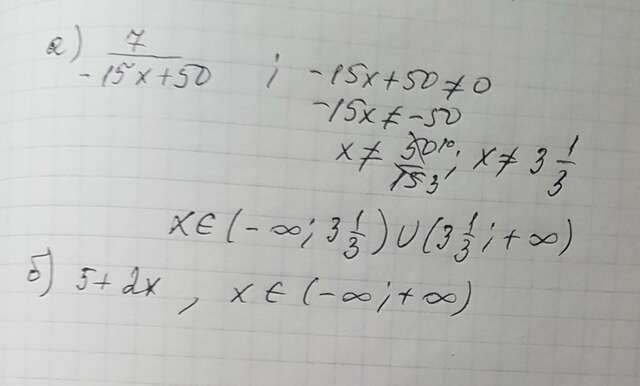 а) 7/(-15x+50) ; -15x+50≠0
-15x≠-50
x≠ 50 10/15 3; x≠3 1/3
x∈(-∞; 3 1/3)∪(3 1/3; +∞)
б) 5+2x, x∈(-∞;+∞)